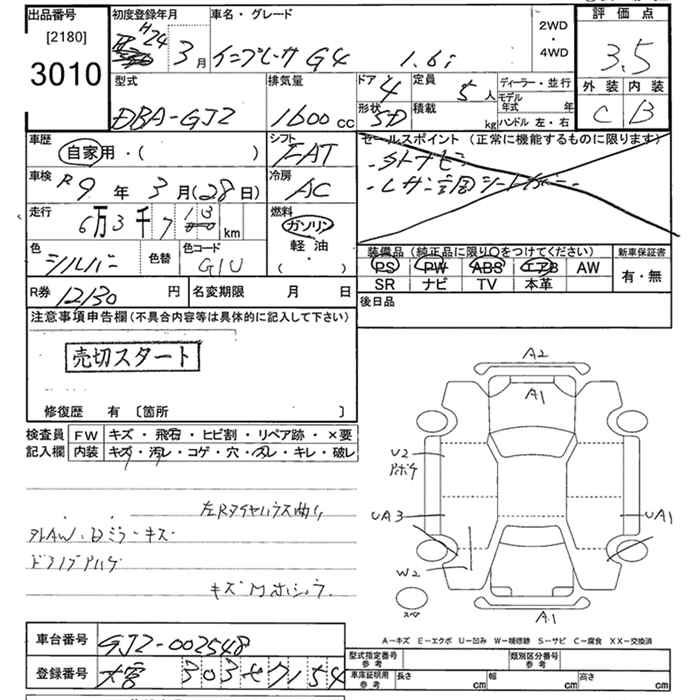 出品番号
[2180]
3010
初度登録年月
H24
3月
車名・グレード
インプレッサ G4 1.6i
2WD
・
4WD
評価点
3.5
外装 内装
C B
型式
DBA-GJ2
排気量
1600 cc
ドア
4
形状
5D
定員
5人
積載
kg
ディーラー・並行
モデル年式 年
ハンドル 左・右
車歴
自家用・( )
シフト
FAT
車検
R9年3月(28日)
冷房
AC
走行
6万3千7
km
燃料
ガソリン
軽油
・( )
色
シルバー
色替
色コード
G1U
R券 12130 円
名変期限 月 日
セールスポイント (正常に機能するものに限ります)
装備品 (純正品に限り○をつけてください)
PS PW ABS エアB AW
SR ナビ TV 本革
新車保証書
有・無
後日品
注意事項申告欄 (不具合内容等は具体的に記入して下さい)
売切スタート
修復歴 有 〔箇所 〕
検査員記入欄
FW キズ・飛石・ヒビ割・リペア跡・×要
内装 キズ・汚レ・コゲ・穴・スレ・キレ・破レ
左Rタイヤハウス曲り
ドアミラーキズ
A2
A1
U2
UA3
UA1
W2
A1
スペア
A−キズ E−エクボ U−凹み W−補修跡 S−サビ C−腐食 XX−交換済
車台番号 GJ2-002548
登録番号 大宮 303 セ 7154
型式指定番号 参考
類別区分番号 参考
車庫証明用 参考
長さ cm
幅 cm
高さ cm